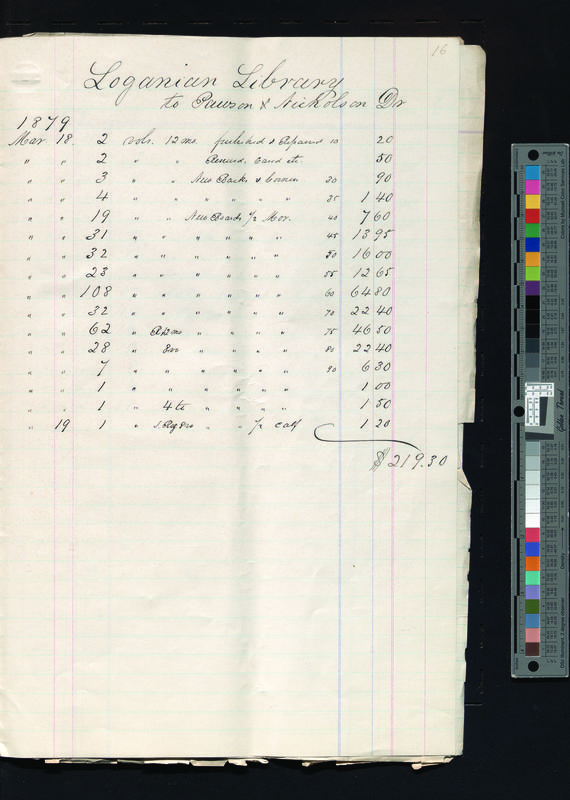 16
Loganian Library
to Pawson & Nicholson Dr
1879
Mar 18. 2 vols. 12mo. furbished & Repaired 10 20
" " 2 " " Resewed, cased etc. 50
" " 3 " " New Backs & Corners 30 90
" " 4 " " " " " " 35 1 40
" " 19 " " New Boards 1/2 Mor. 40 7 60
" " 31 " " " " " " 45 13 95
" " 32 " " " " " " 50 16 00
" " 23 " " " " " " 55 12 65
" " 108 " " " " " " 60 64 80
" " 32 " " " " " " 70 22 40
" " 62 " " " " " 75 46 50
" " 28 " 8vo " " " " 80 22 40
" " 7 " " " " " " 90 6 30
" " 1 " " " " " " 1 00
" " 1 " 4to " " " " 1 50
" 19 1 " " " 1/2 calf 1 20
$219.30